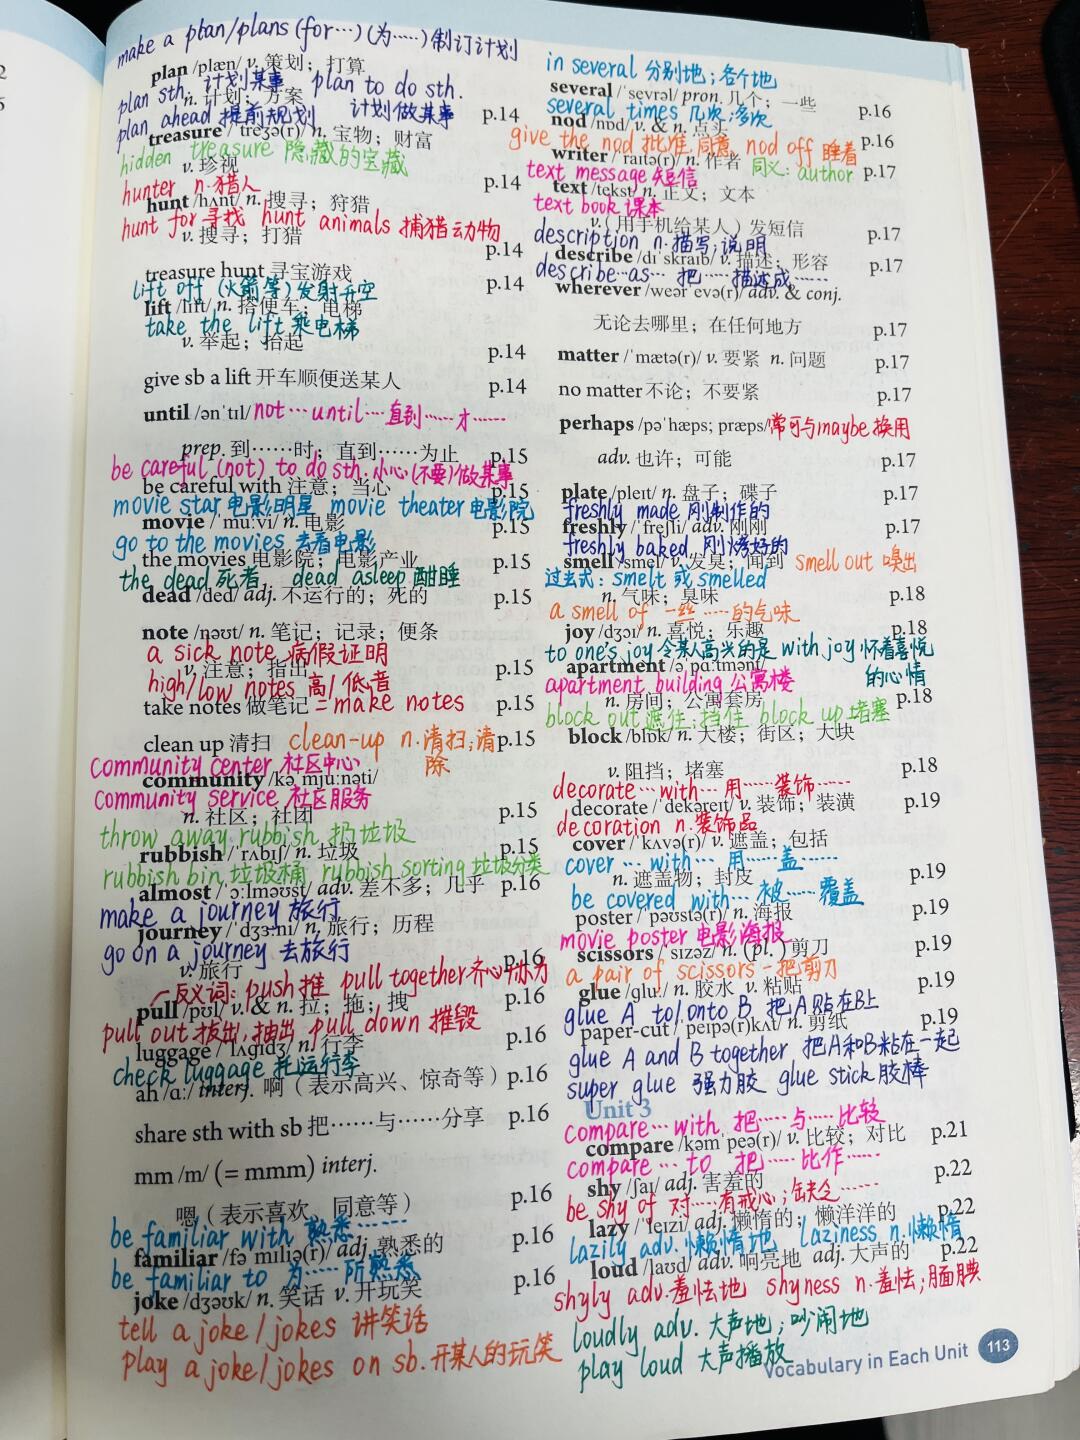 make a plan/plans (for…) (为……) 制订计划
plan /plæn/ v. 策划；打算
plan sth. 计划某事 plan to do sth.
n. 计划；方案 计划做某事
plan ahead 提前规划 p.14
treasure /ˈtreʒə(r)/ n. 宝物；财富
hidden treasure 隐藏的宝藏
v. 珍视 p.14
hunter n. 猎人
hunt /hʌnt/ n. 搜寻；狩猎
hunt for 寻找 hunt animals 捕猎动物
v. 搜寻；打猎 p.14
treasure hunt 寻宝游戏 p.14
lift off (火箭等)发射升空
lift /lɪft/ n. 搭便车；电梯
take the lift 乘电梯
v. 举起；抬起 p.14
give sb a lift 开车顺便送某人 p.14
until /ənˈtɪl/ not…until… 直到……才……
prep. 到……时；直到……为止 p.15
be careful (not) to do sth. 小心(不要)做某事
be careful with 注意；当心 p.15
movie star 电影明星 movie theater 电影院
movie /ˈmuːvi/ n. 电影 p.15
go to the movies 去看电影
the movies 电影院；电影产业 p.15
the dead 死者 dead asleep 酣睡
dead /ded/ adj. 不运行的；死的 p.15
note /nəʊt/ n. 笔记；记录；便条
a sick note 病假证明
v. 注意；指出 p.15
high/low notes 高/低音
take notes 做笔记 = make notes p.15
clean up 清扫 clean-up n. 清扫；清除 p.15
community center 社区中心
community /kəˈmjuːnəti/
community service 社区服务
n. 社区；社团 p.15
throw away rubbish 扔垃圾
rubbish /ˈrʌbɪʃ/ n. 垃圾 p.15
rubbish bin 垃圾桶 rubbish sorting 垃圾分类
almost /ˈɔːlməʊst/ adv. 差不多；几乎 p.16
make a journey 旅行
journey /ˈdʒɜːni/ n. 旅行；历程
go on a journey 去旅行
v. 旅行 p.16
反义词：push 推 pull together 齐心协力
pull /pʊl/ v. & n. 拉；拖；拽 p.16
pull out 拔出，抽出 pull down 摧毁
luggage /ˈlʌɡɪdʒ/ n. 行李 p.16
check luggage 托运行李
ah /ɑː/ interj. 啊（表示高兴、惊奇等） p.16
share sth with sb 把……与……分享 p.16
mm /m/ (= mmm) interj.
嗯（表示喜欢、同意等） p.16
be familiar with 熟悉……
familiar /fəˈmɪliə(r)/ adj. 熟悉的 p.16
be familiar to 为……所熟悉
joke /dʒəʊk/ n. 笑话 v. 开玩笑 p.16
tell a joke/jokes 讲笑话
play a joke/jokes on sb. 开某人的玩笑
in several 分别地；各个地
several /ˈsevrəl/ pron. 几个；一些 p.16
several times 几次；多次
nod /nɒd/ v. & n. 点头 p.16
give the nod 批准，同意 nod off 睡着
writer /ˈraɪtə(r)/ n. 作者 p.17
text message 短信 同义：author
text /tekst/ n. 正文；文本
text book 课本
v.（用手机给某人）发短信 p.17
description n. 描写；说明
describe /dɪˈskraɪb/ v. 描述；形容 p.17
describe…as… 把……描述成……
wherever /weərˈevə(r)/ adv. & conj.
无论去哪里；在任何地方 p.17
matter /ˈmætə(r)/ v. 要紧 n. 问题 p.17
no matter 不论；不要紧 p.17
perhaps /pəˈhæps; præps/ 常可与maybe换用
adv. 也许；可能 p.17
plate /pleɪt/ n. 盘子；碟子 p.17
freshly made 刚制作的
freshly /ˈfreʃli/ adv. 刚刚 p.17
freshly baked 刚烤好的
smell /smel/ v. 发臭；闻到 smell out 嗅出
过去式：smelt 或 smelled
n. 气味；臭味 p.18
a smell of 一丝……的气味
joy /dʒɔɪ/ n. 喜悦；乐趣 p.18
to one's joy 令某人高兴的是 with joy 怀着喜悦的心情
apartment /əˈpɑːtmənt/
apartment building 公寓楼
n. 房间；公寓套房 p.18
block out 遮住；挡住 block up 堵塞
block /blɒk/ n. 大楼；街区；大块
v. 阻挡；堵塞 p.18
decorate…with… 用……装饰……
decorate /ˈdekəreɪt/ v. 装饰；装潢 p.19
decoration n. 装饰品
cover /ˈkʌvə(r)/ v. 遮盖；包括
cover…with… 用……盖……
n. 遮盖物；封皮 p.19
be covered with… 被……覆盖
poster /ˈpəʊstə(r)/ n. 海报 p.19
movie poster 电影海报
scissors /ˈsɪzəz/ n. (pl.) 剪刀 p.19
a pair of scissors 一把剪刀
glue /ɡluː/ n. 胶水 v. 粘贴 p.19
glue A to/onto B 把A贴在B上
paper-cut /ˈpeɪpə(r)kʌt/ n. 剪纸 p.19
glue A and B together 把A和B粘在一起
super glue 强力胶 glue stick 胶棒
Unit 3
compare…with 把……与……比较
compare /kəmˈpeə(r)/ v. 比较；对比 p.21
compare…to 把……比作……
shy /ʃaɪ/ adj. 害羞的 p.22
be shy of 对……有戒心；缺乏……
lazy /ˈleɪzi/ adj. 懒惰的；懒洋洋的 p.22
lazily adv. 懒惰地 laziness n. 懒惰
loud /laʊd/ adv. 响亮地 adj. 大声的 p.22
shyly adv. 羞怯地 shyness n. 羞怯；腼腆
loudly adv. 大声地；吵闹地
play loud 大声播放
Vocabulary in Each Unit 113